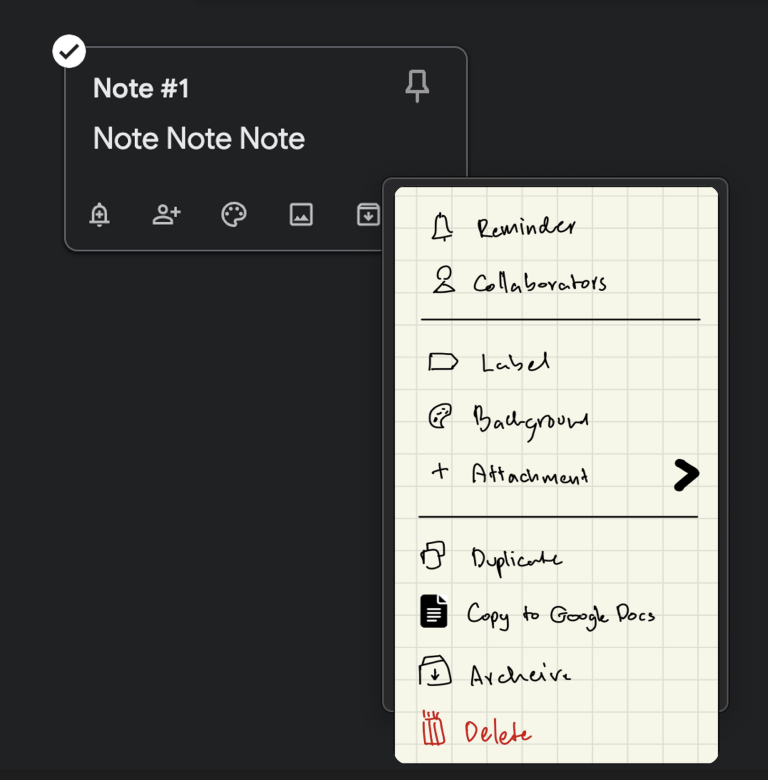 Note #1
Note Note Note
Reminder
Collaborators
Label
Background
Attachment
Duplicate
Copy to Google Docs
Archeive
Delete